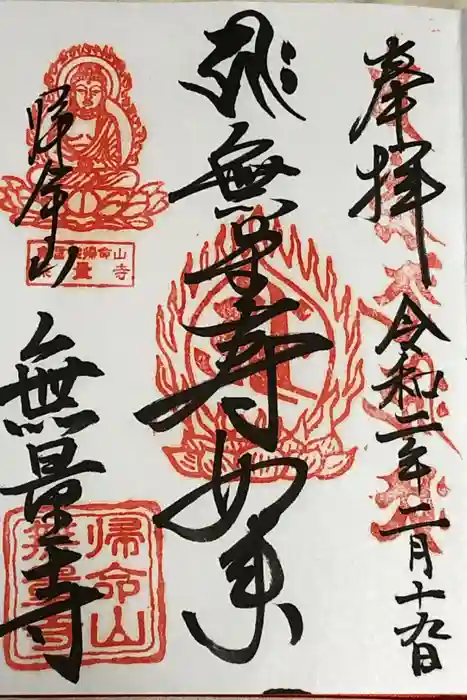 奉拝
令和二年二月十九日
無量寿如来
帰命山
無量寺
帰命山
無量寺
帰命山
無量寺